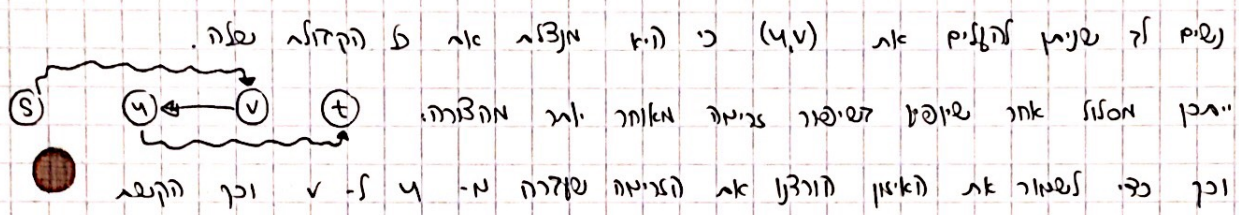 נשים לב שניתן להעלים את (u,v) כי היא מנצלת את כל הקיבולת שלה.
ייתכן מסלול אחר שיופיע בשיפור זרימה מאוחר יותר מהצורה:
s u v t
וכך כדי לשמור את האיזון הורדנו את הזרימה שעברה מ- u ל- v וכך הקשת